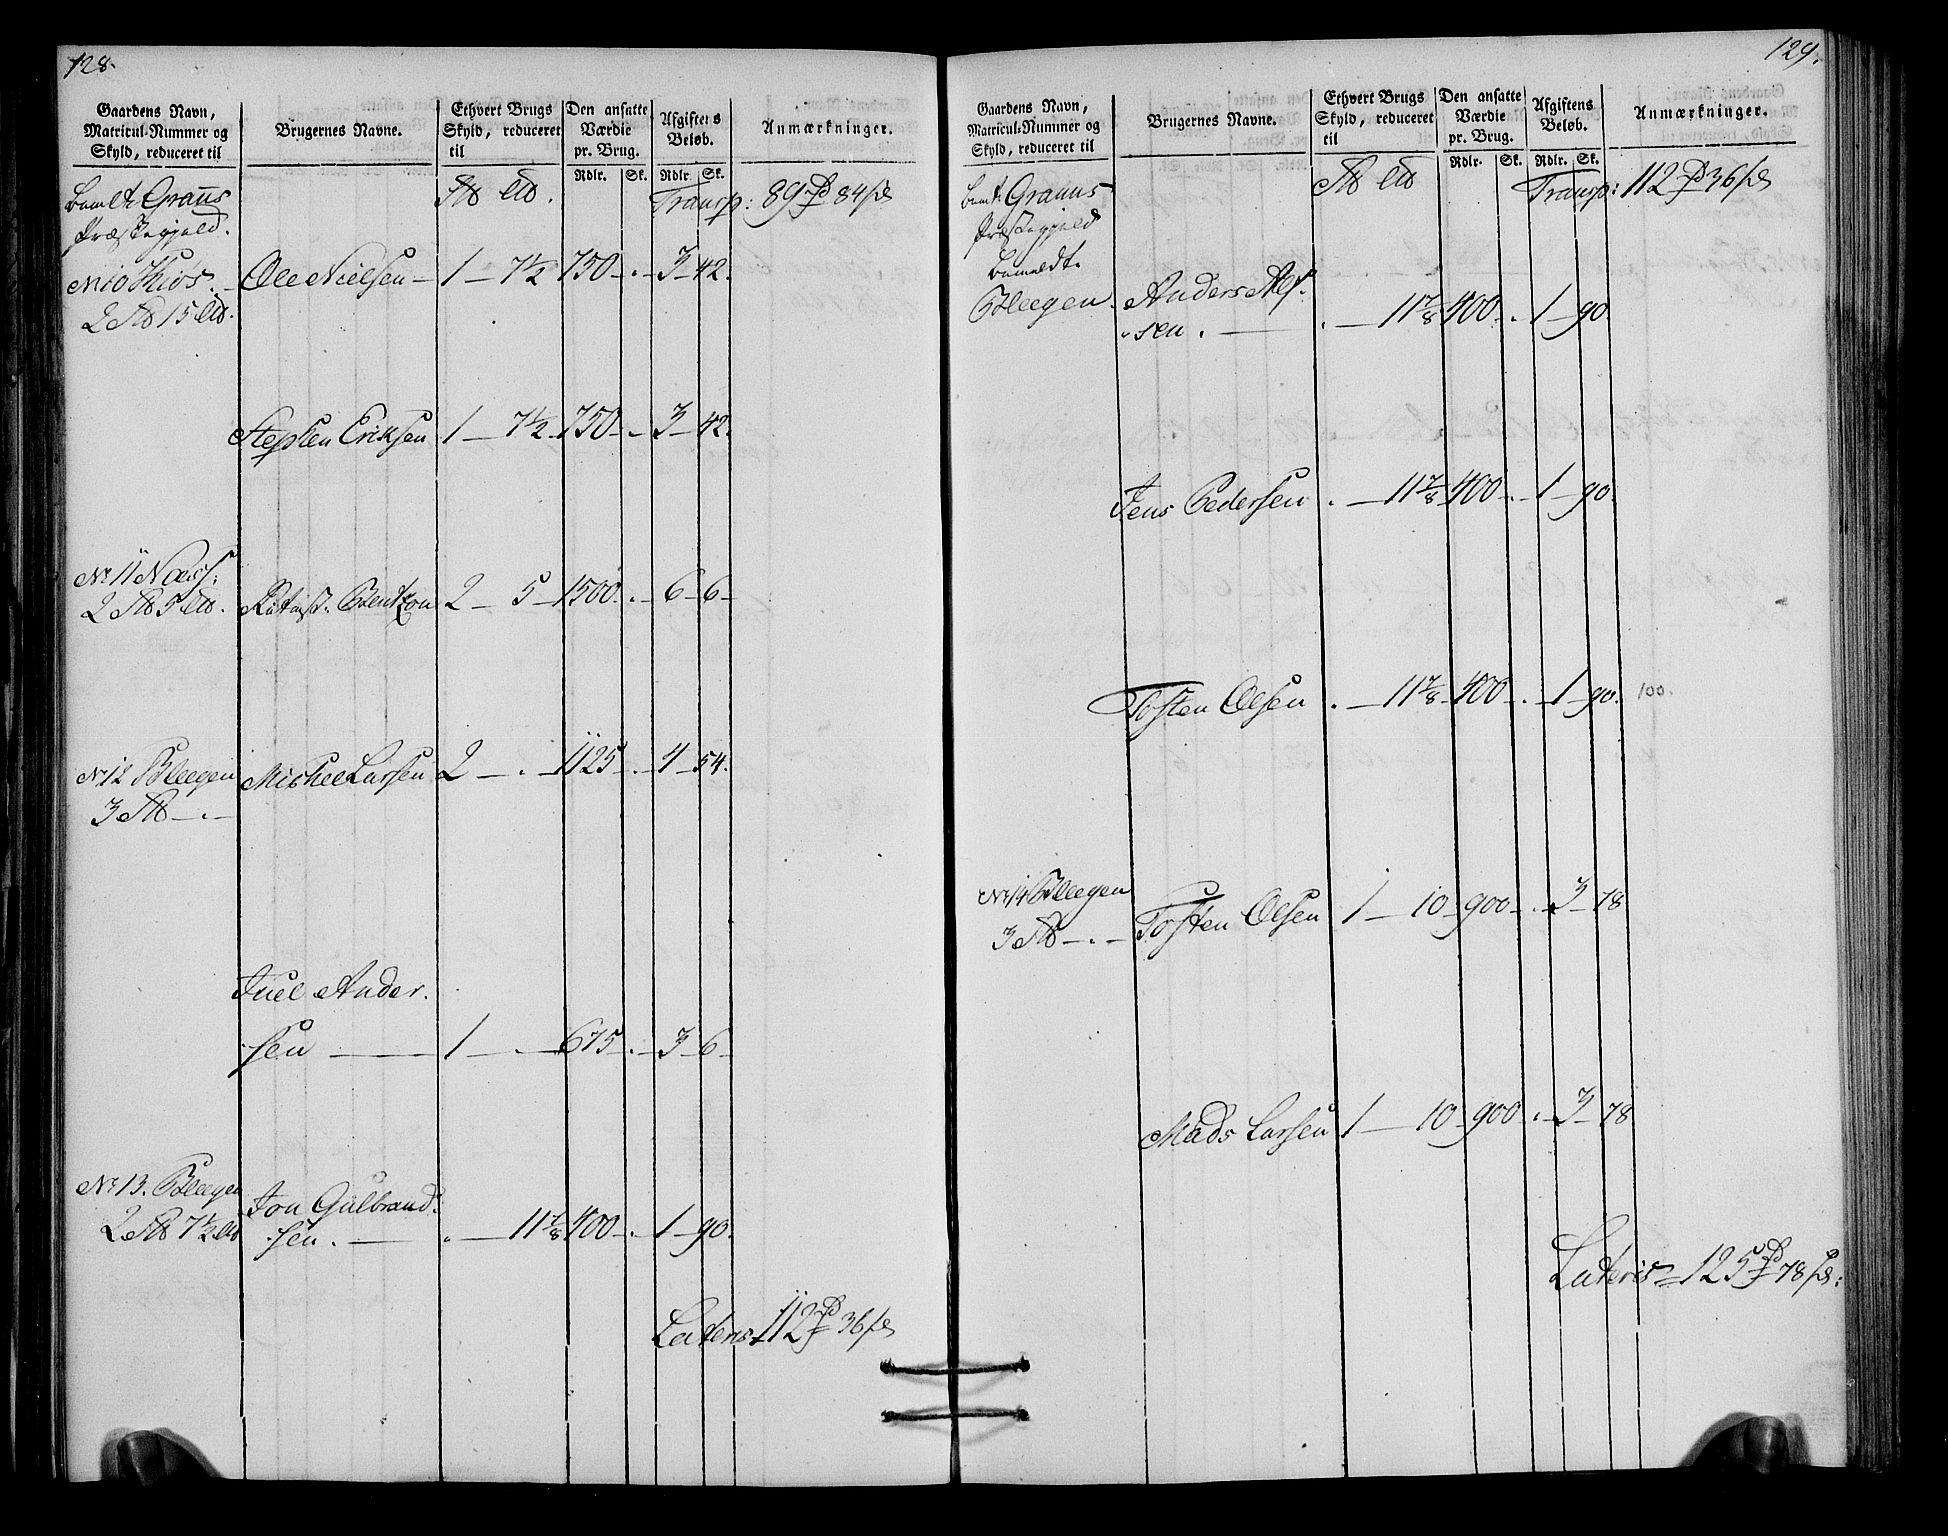 128.
Gaardens Navn,
Matricul-Nummer og
Skyld, reduceret til
Brugernes Navne.
Ethvert Brugs
Skyld, reduceret
til
Den ansatte
Værdie
pr. Brug.
Rdlr. Sk.
Afgiftens
Beløb.
Rdlr. Sk.
Anmærkninger.
Transp: 89 84
Præstegjeld.
Ole Nielsen – 1 – 7½ 750 – . – 3 – 42.
Stephen Eriksen 1 – 7½ 750 – . – 3 – 42.
No 11 Næss:
2 5 . Bentzon 2 – 5 – 1500 – . – 6 – 6 –
No 12 Bleegen Michel Larsen 2 – . – 1125 – . – 4 – 54.
3 – . –
Juel Ander.
sen 1 – . – 675 – . – 3 – 6 –
No 13. Bleegen Jon Gulbrand.
2 7½ sen. . – 11⅞ 400 – . – 1 – 90.
Lateris 112 36
129.
Gaardens Navn,
Matricul-Nummer og
Skyld, reduceret til
Brugernes Navne.
Ethvert Brugs
Skyld, reduceret
til
Den ansatte
Værdie
pr. Brug.
Rdlr. Sk.
Afgiftens
Beløb.
Rdlr. Sk.
Anmærkninger.
Transp: 112 36
Præstegjeld
Bleegen. Anders Alf.
sen. . – 11⅞ 400 – . 1 – 90.
Jens Pedersen . – 11⅞ 400 – . 1 – 90.
Tosten Olsen . – 11⅞ 400 – . – 1 – 90. 100.
No 14 Bleegen Tosten Olsen 1 – 10 – 900 – . 3 – 78
3 – . –
Mads Larsen 1 – 10 – 900 . 3 – 78
Lateris 125 78